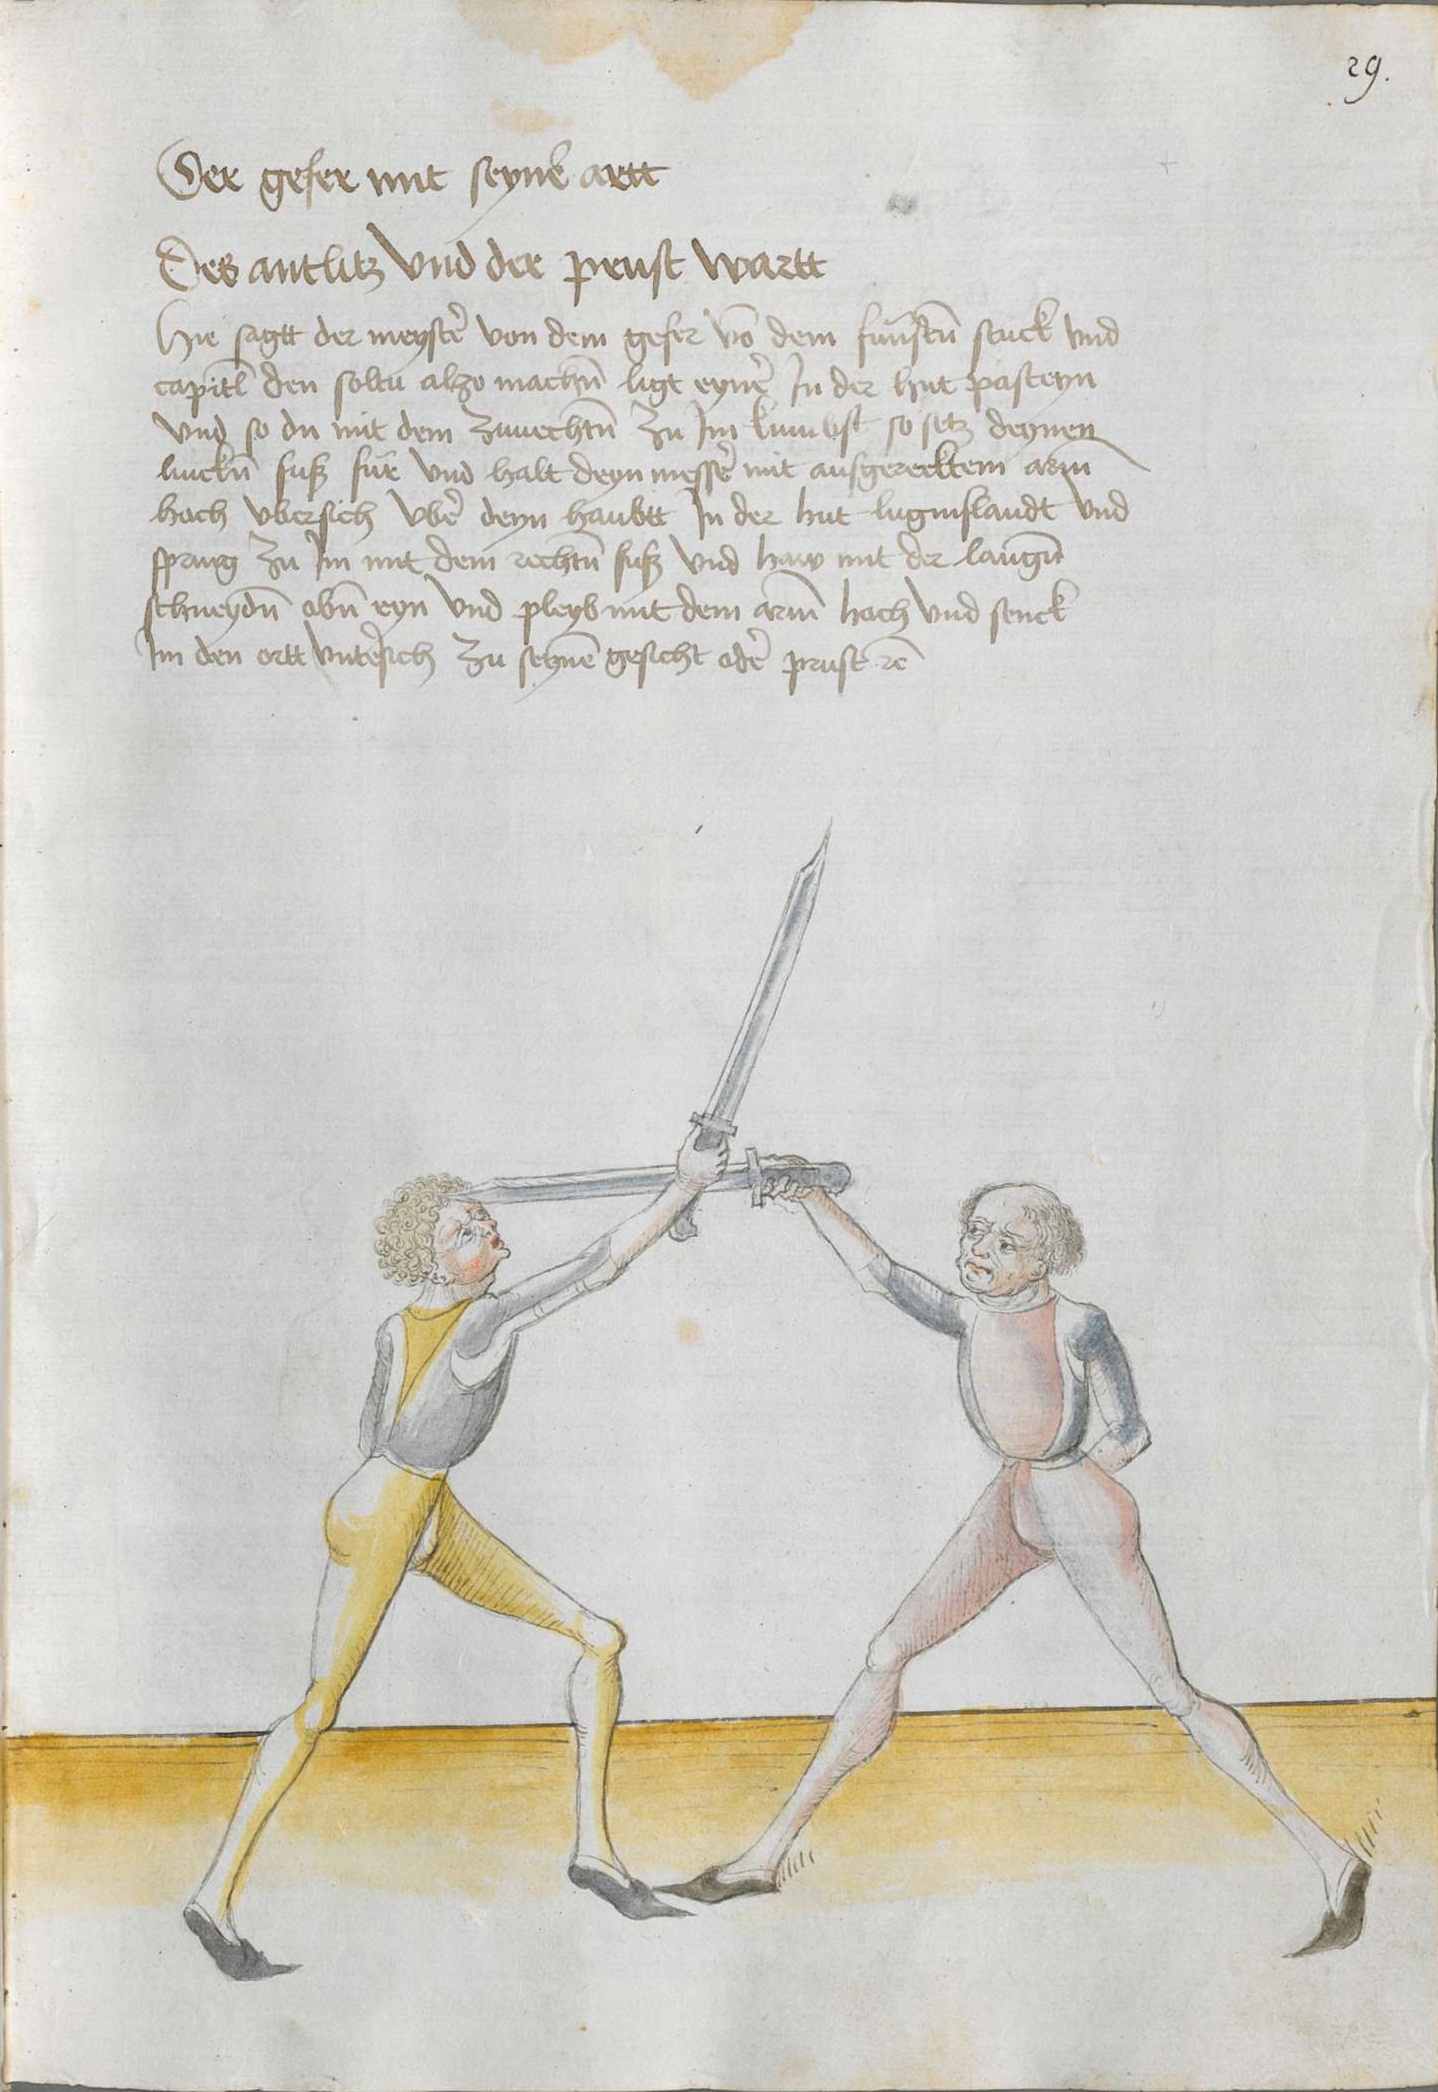 29.
Der gefer mit seyner artt
Des antlitz vnd der prust wartt
Hie sagtt der meystẽ von dem gefer võ dem funfftñ stuck vnd
capitl den soltu alzo machñ ligt eynẽ Jn der hut pasteyn
vnd so du mit dem zuuechtñ zu Jm kumbst so setz deynen
linckñ fuß für vnd halt deyn messẽ mit ausgerecktem arm
hoch vbersich vbẽ deyn haubtt Jn der hut luginslandt vnd
spring zu Jm mit dem rechtñ fuß vnd haw mit der langñ
schneydñ obñ eyn vnd pleyb mit dem arm hoch vnd senck
Jm den ortt vntẽsich zu seynẽ gesicht odẽ prust rc̃